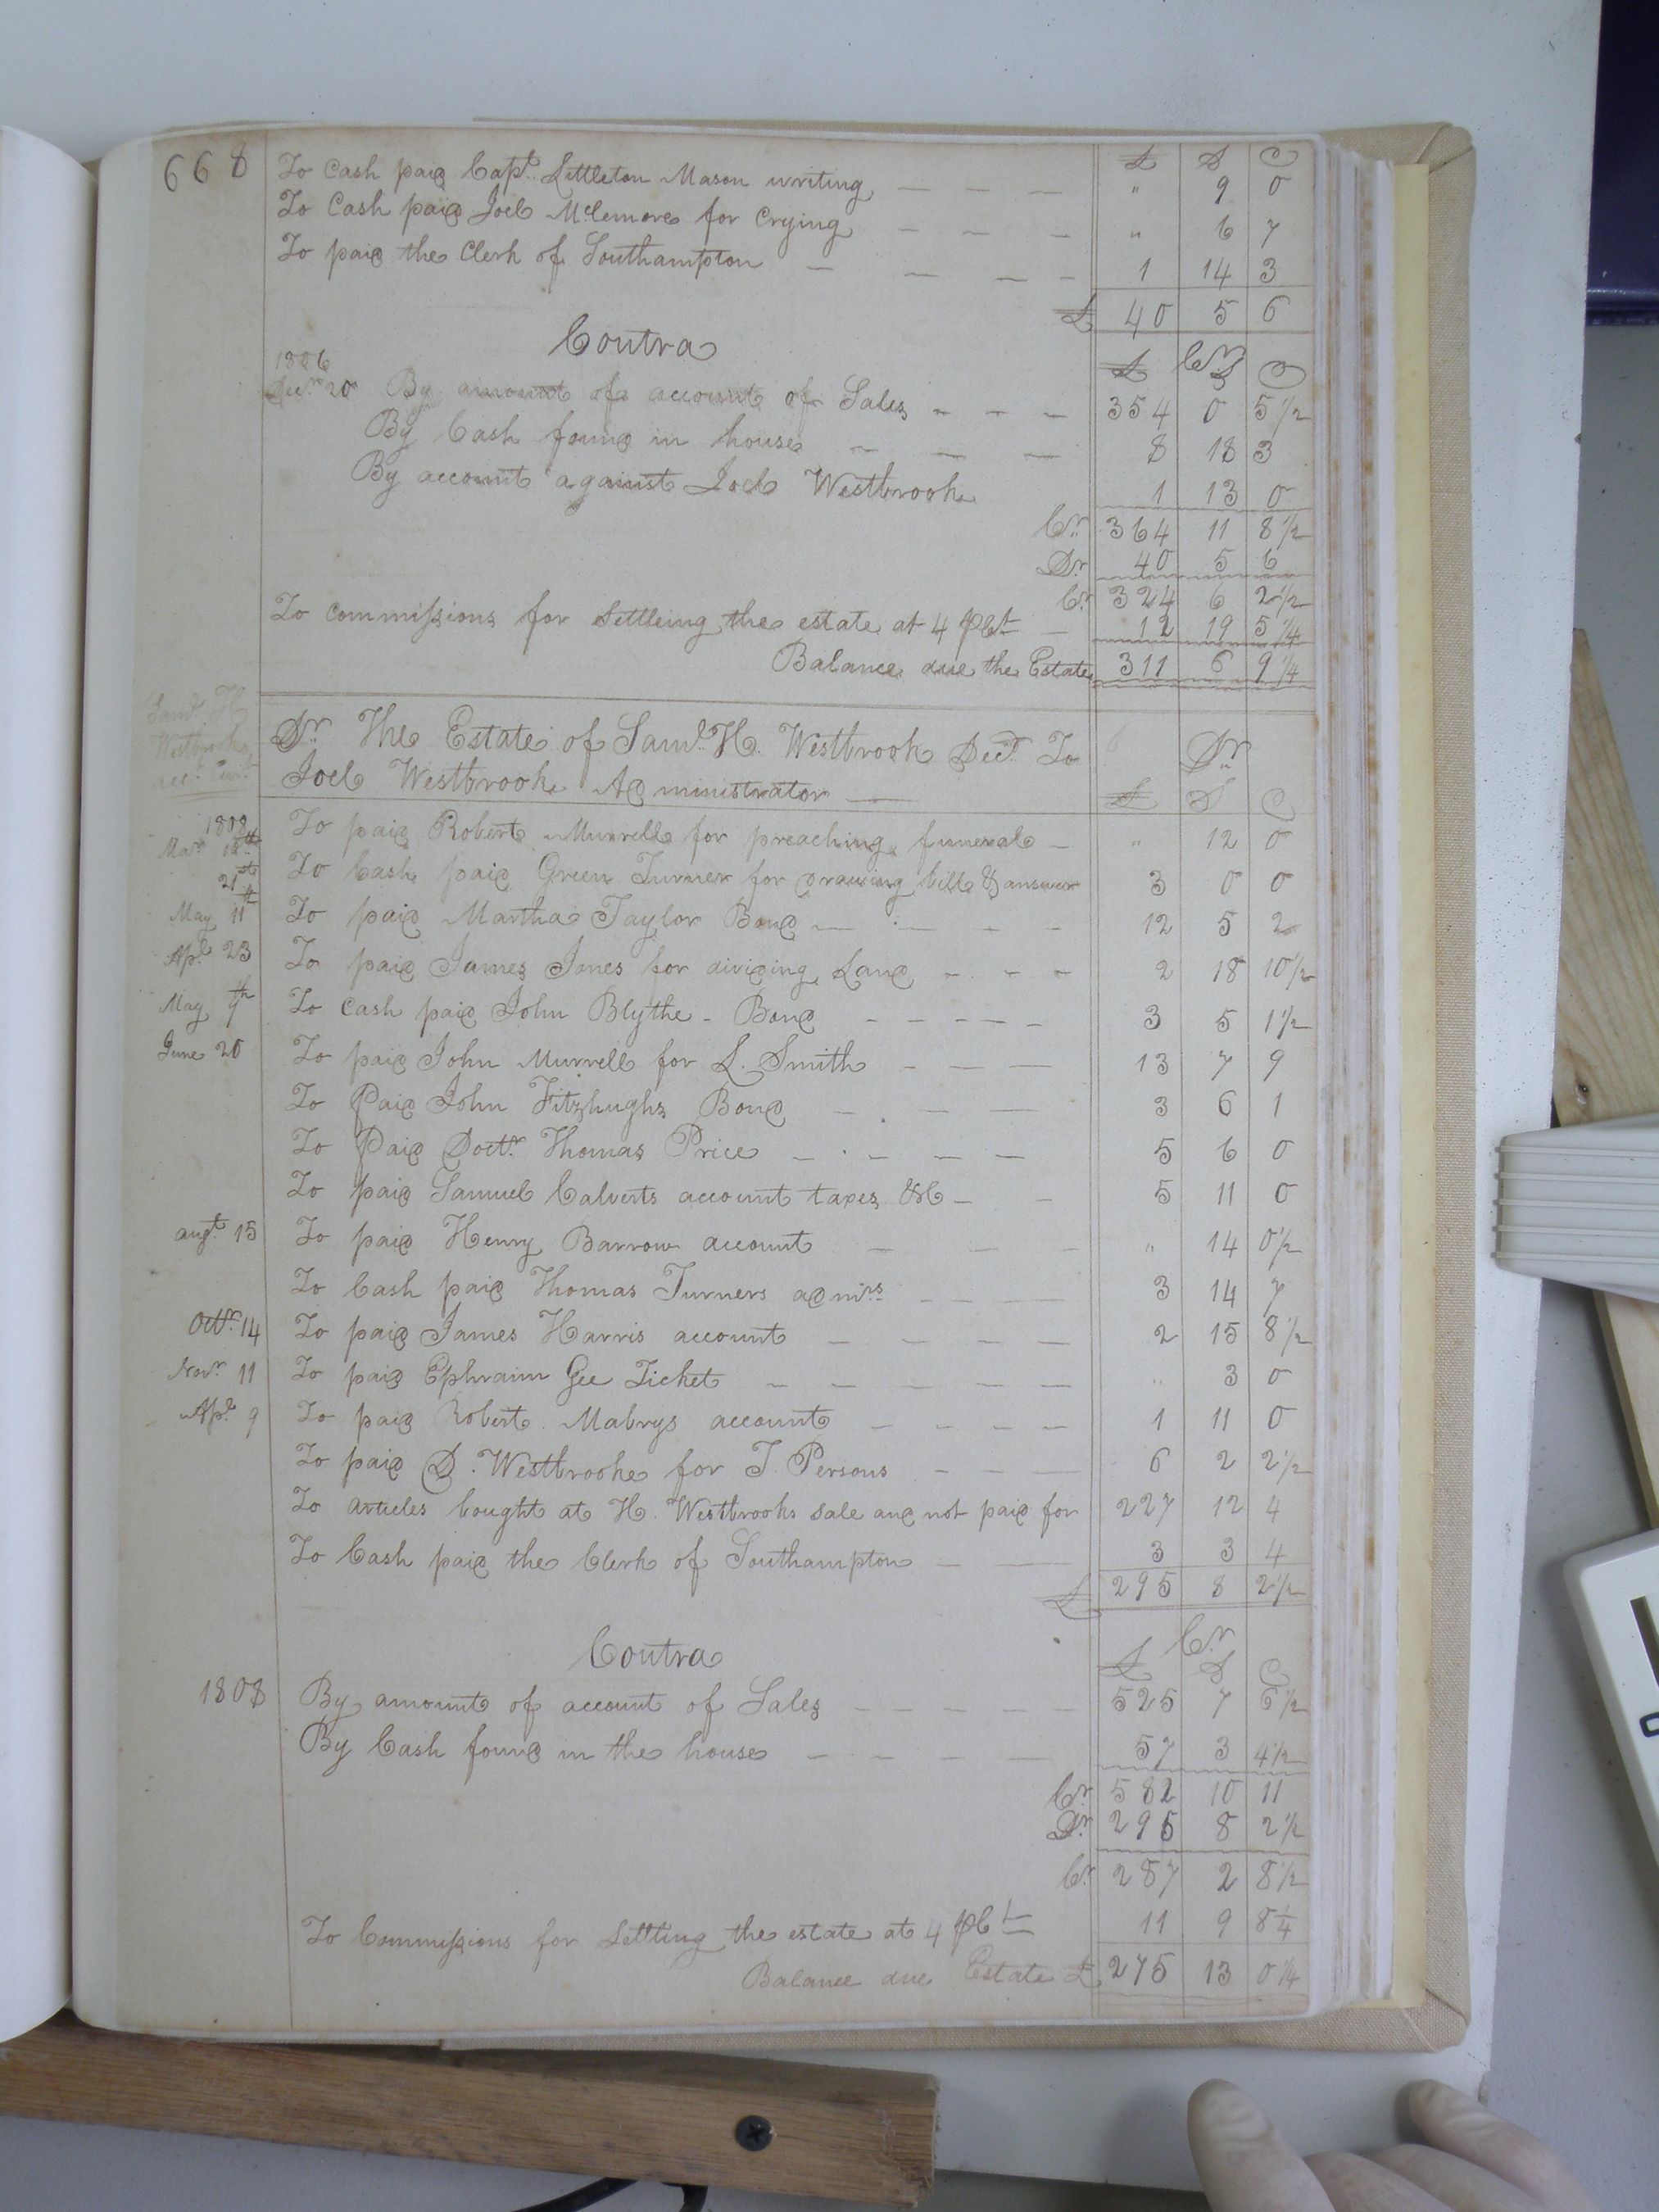 668
£ S D
To Cash paid Capt. Littleton Mason writing — — — " 9 0
To Cash paid Joel Mclemore for Crying — — — " 6 7
To paid the Clerk of Southampton — — — — 1 14 3
£ 40 5 6
Contra Cr
£ S D
1806
Decr. 20 By amount of account of Sales - - - 354 0 5 1/2
By Cash found in house — — — 8 18 3
By account against Joel Westbrook 1 13 0
Cr. 364 11 8 1/2
Dr. 40 5 6
Cr. 324 6 2 1/2
To commissions for settleing the estate at 4 pCt — 12 19 5 1/4
Balance due the Estate 311 6 9 1/4
Saml. H
Westbrooks
acct. Curt.
Dr. The Estate of Saml. H. Westbrook Decd. To Dr.
Joel Westbrook Administrator — £ S D
1808
Mar 18th To paid Robert Murrell for preaching funeral — " 12 0
21st To Cash paid Green Turner for drawing bill & answer 3 0 0
May 11th To paid Martha Taylor Bond — — - - 12 5 2
Apl. 23 To paid James Jones for dividing Land - - - 2 18 10 1/2
May 9th To Cash paid John Blythe - Bond - - - - - 3 5 1 1/2
June 20 To paid John Murrell for L. Smith - — — 13 7 9
To Paid John Fitzhughs Bond — — — 3 6 1
To Paid Doctr. Thomas Price — - — — 5 6 0
To paid Samuel Calverts account taxes &C — - 5 11 0
augt. 15 To paid Henry Barrow account — — — " 14 0 1/2
To Cash paid Thomas Turners admrs — — — 3 14 7
Octr. 14 To paid James Harris account — — — — 2 15 8 1/2
Novr. 11 To paid Ephraim Gee Ticket — — — — — " 3 0
Apl. 9 To paid Robert Mabrys account — — — — 1 11 0
To paid D. Westbrooke for T. Persons — — — 6 2 2 1/2
To articles bought at H. Westbrooks sale and not paid for 227 12 4
To Cash paid the Clerk of Southampton — — 3 3 4
£ 295 8 2 1/2
Contra Cr.
£ S D
1808 By amount of account of Sales — — — — — 525 7 6 1/2
By Cash found in the house — — — — 57 3 4 1/2
Cr. 582 10 11
Dr. 295 8 2 1/2
Cr. 287 2 8 1/2
To Commissions for Settling the estate at 4 pCt 11 9 8 1/4
Balance due Estate £ 275 13 0 1/4